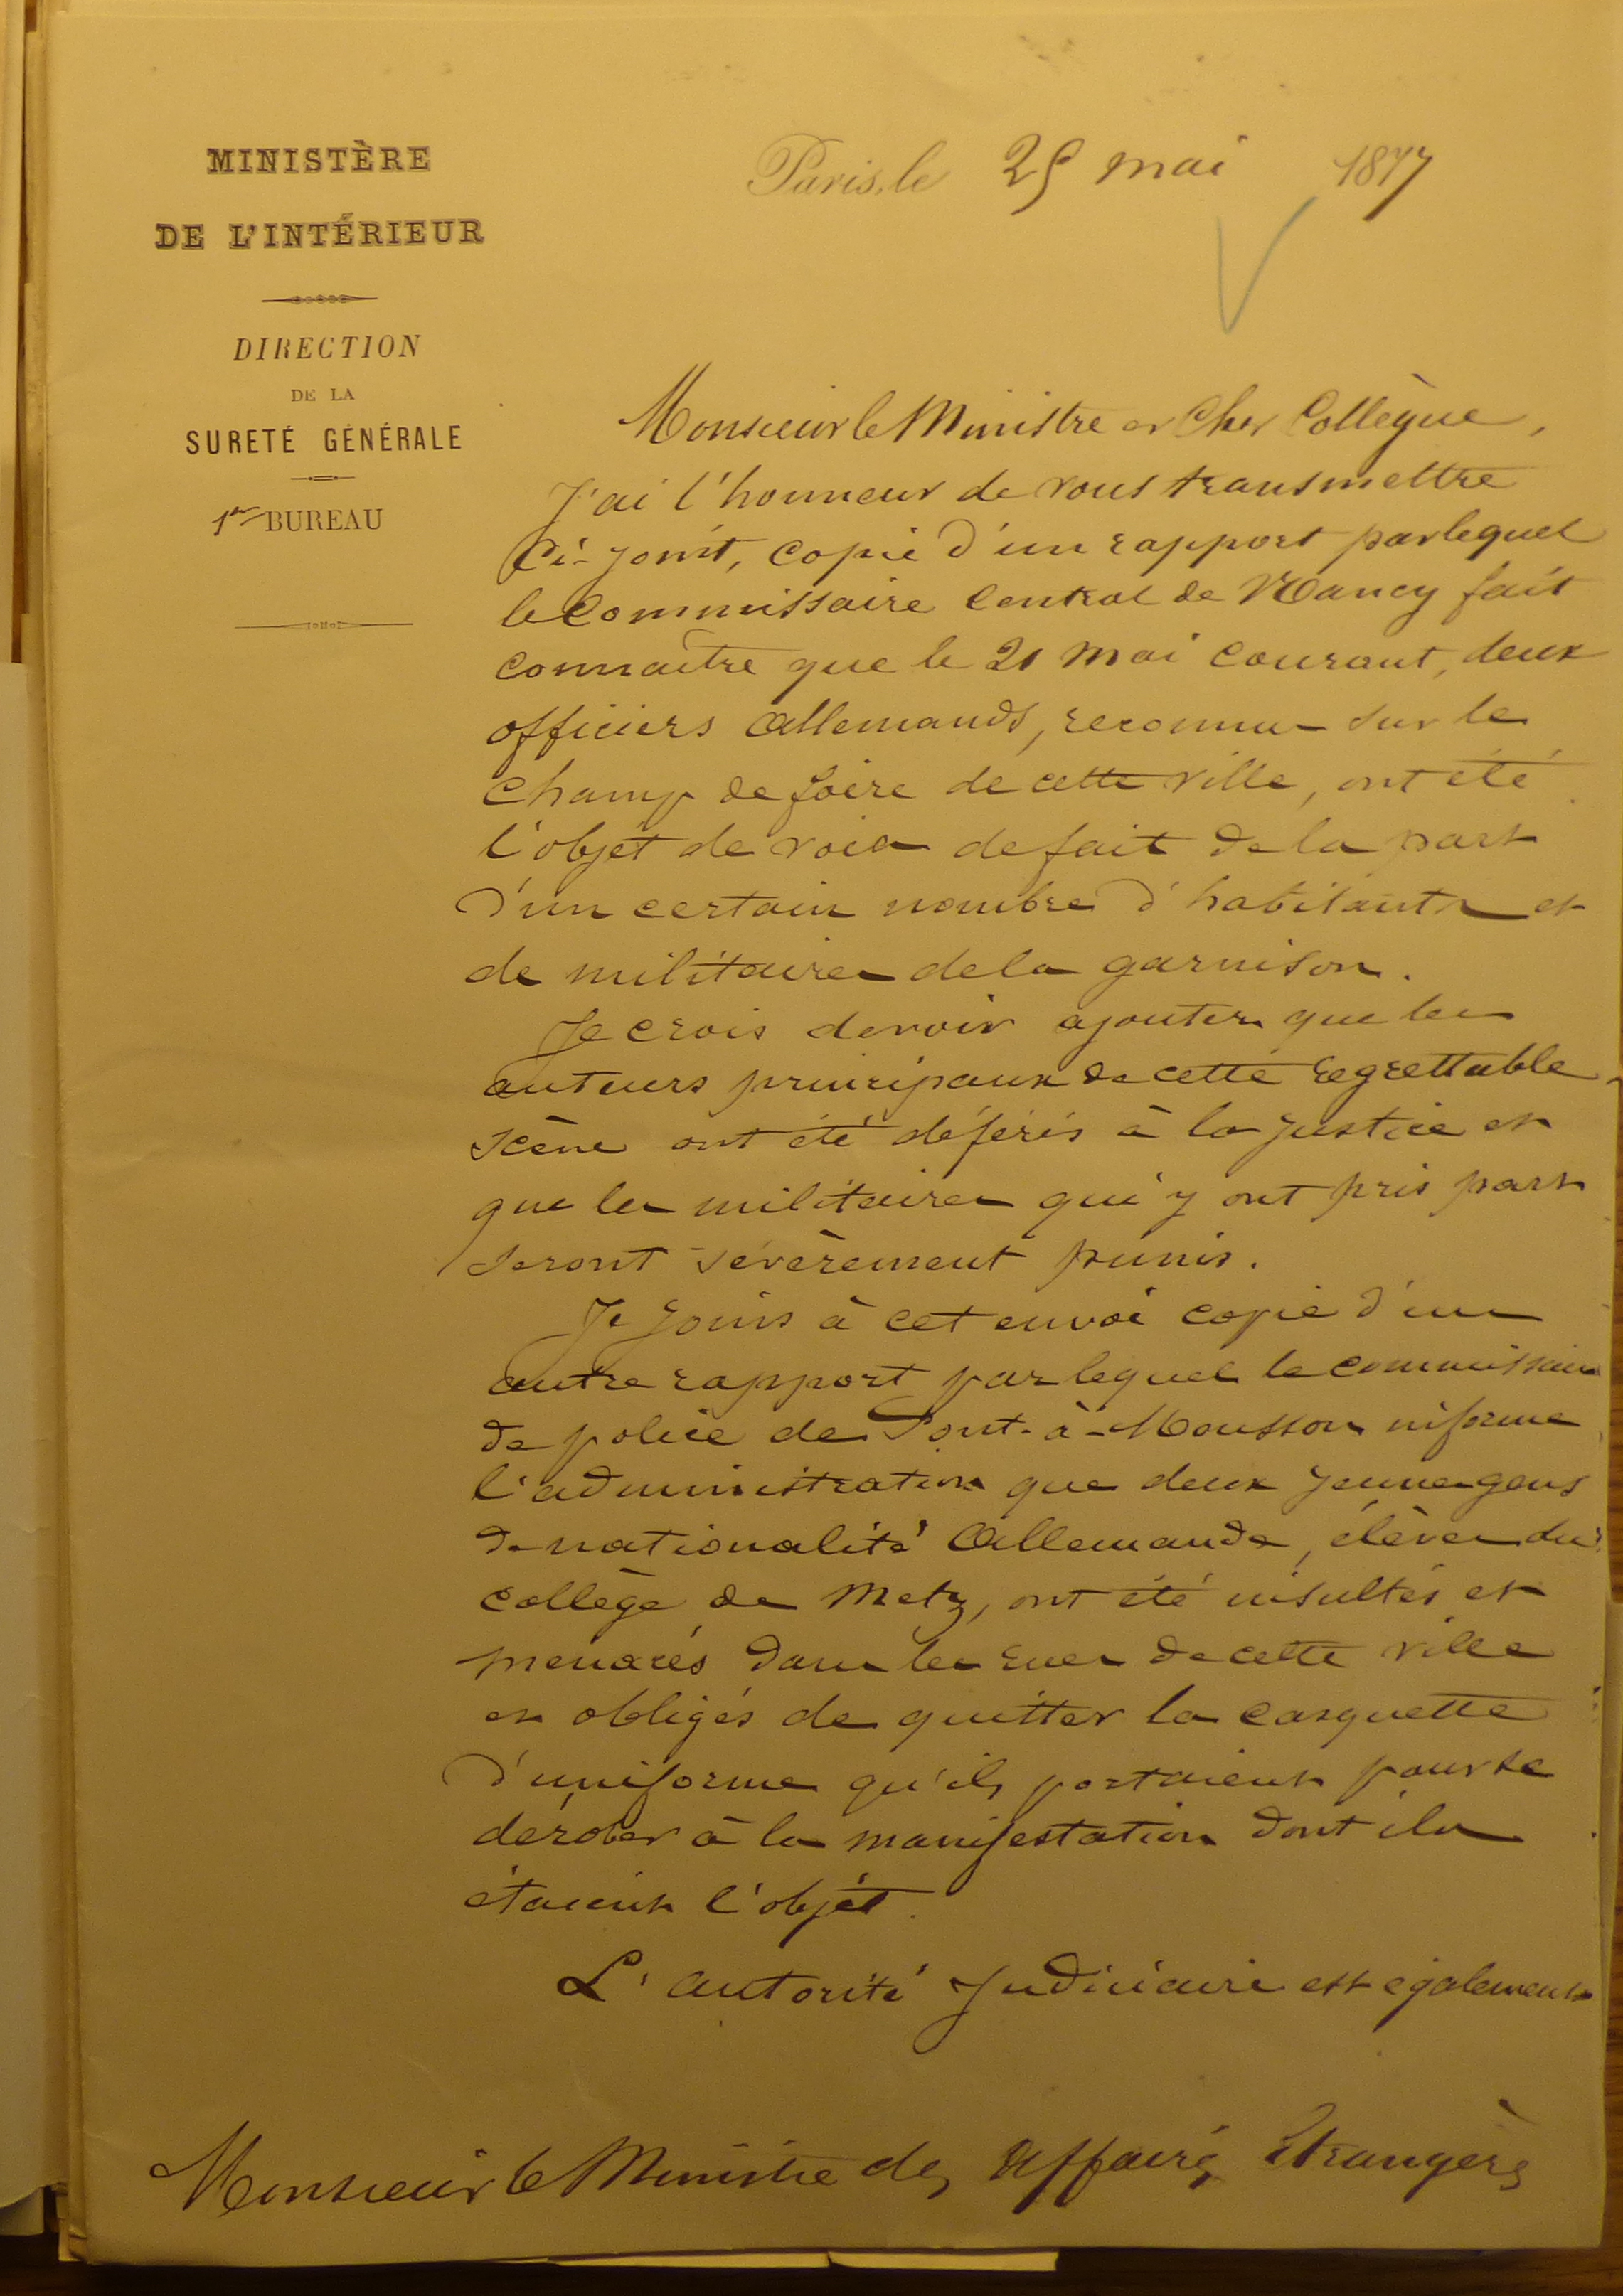 MINISTÈRE
DE L'INTÉRIEUR
DIRECTION
DE LA
SURETÉ GÉNÉRALE
1er BUREAU
Paris, le 25 mai 1877
Monsieur le Ministre et Cher Collègue,
J'ai l'honneur de vous transmettre
Ci-joint, copie d'un rapport par lequel
le Commissaire Central de Nancy fait
connaître que le 21 mai courant, deux
officiers Allemands, reconnus sur le
champ de foire de cette ville, ont été
l'objet de voies de fait de la part
d'un certain nombre d'habitants et
de militaires de la garnison.
Je crois devoir ajouter que les
auteurs principaux de cette regrettable
scène ont été déférés à la justice et
que les militaires qui y ont pris part
seront sévèrement punis.
Je joins à cet envoi copie d'un
autre rapport par lequel le commissaire
de police de Pont-à-Mousson informe
l'administration que deux jeunes gens
de nationalité Allemande, élèves du
collège de Metz, ont été insultés et
menacés dans les rues de cette ville
et obligés de quitter la casquette
d'uniforme qu'ils portaient pour se
dérober à la manifestation dont ils
étaient l'objet.
L'autorité Judiciaire est également
Monsieur le Ministre des Affaires Etrangères